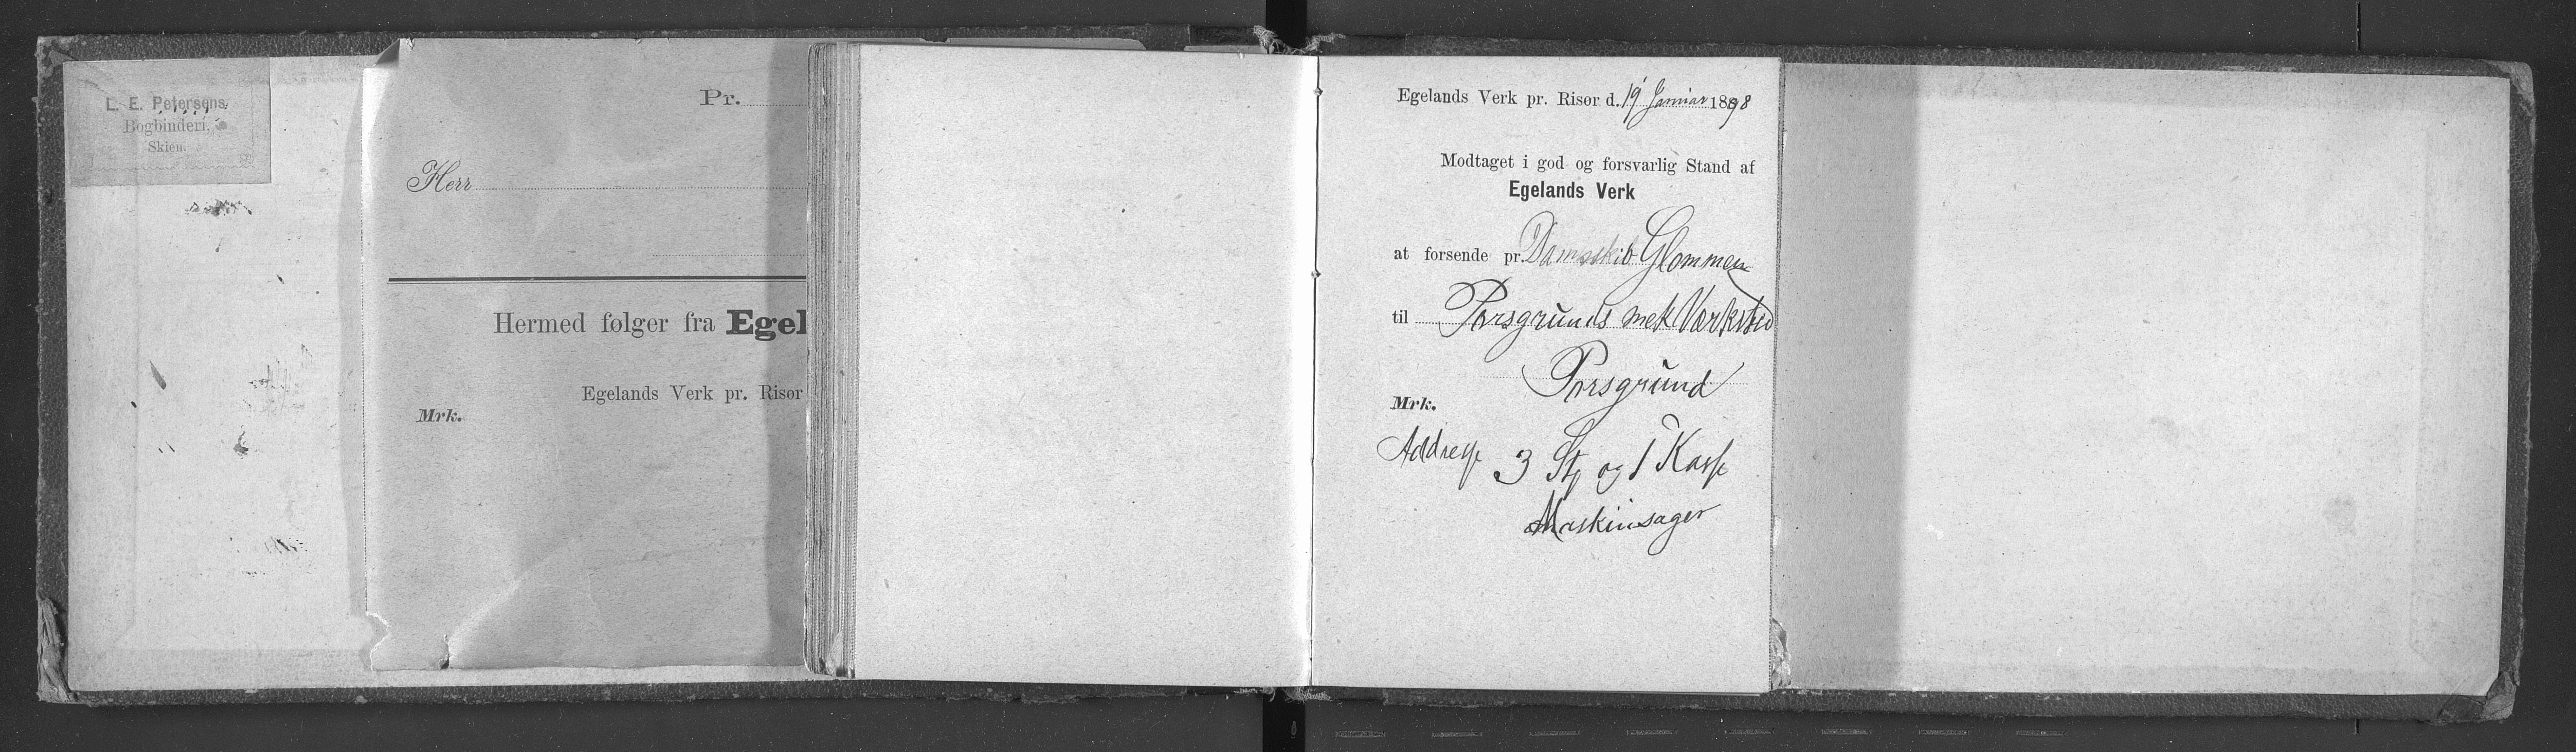 L. E. Petersens
Bogbinderi,
Skien.
Pr.
Herr
Hermed følger fra Egel
Egelands Verk pr. Risør
Mrk.
Egelands Verk pr. Risør d. 19 Januar 1898
Modtaget i god og forsvarlig Stand af
Egelands Verk
at forsende pr. Damskib Glommen
til Porsgrunds mek Værksted
Porsgrund
Mrk.
Addresse 3 St og 1 Kasse
Maskinsager